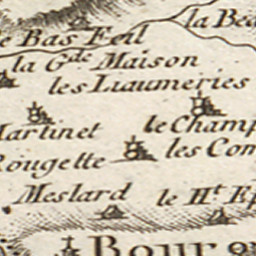 la Bea
le Bas Feil
la G.de Maison
les Liaumeries
Martinet
le Champ
Rougette
les Com
Meslard
le H.t Ep
Bour